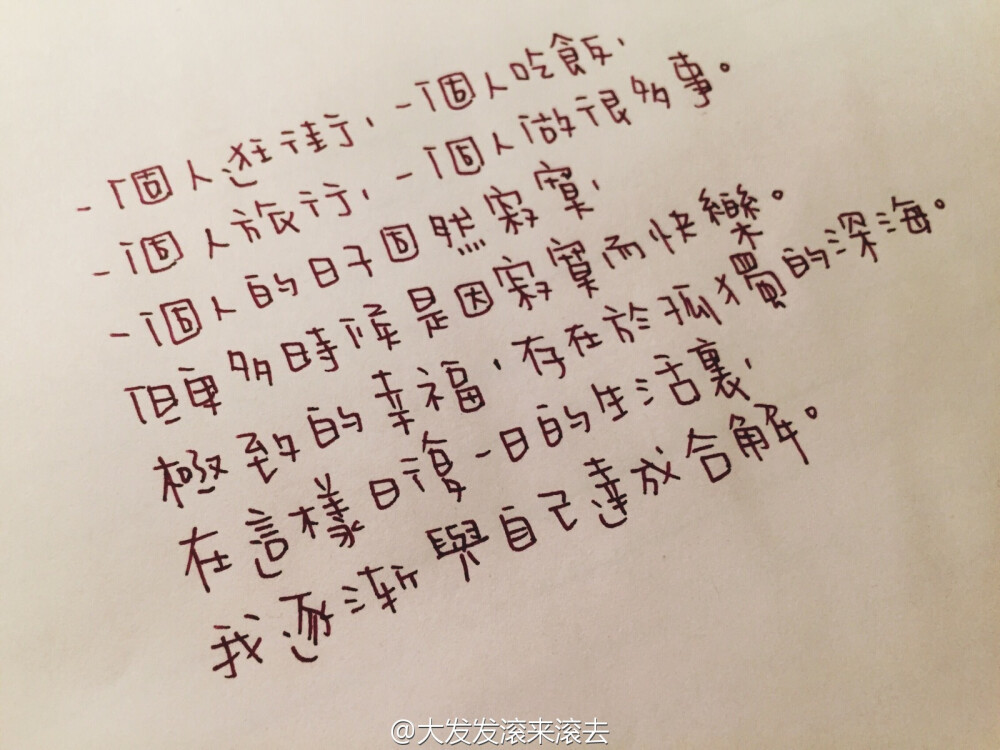 一個人逛街，一個人吃飯，
一個人旅行，一個人做很多事。
一個人的日子固然寂寞，
但更多時候是因寂寞而快樂。
極致的幸福，存在於孤獨的深海。
在這樣日復一日的生活裏，
我逐漸與自己達成合解。
@大发发滚来滚去